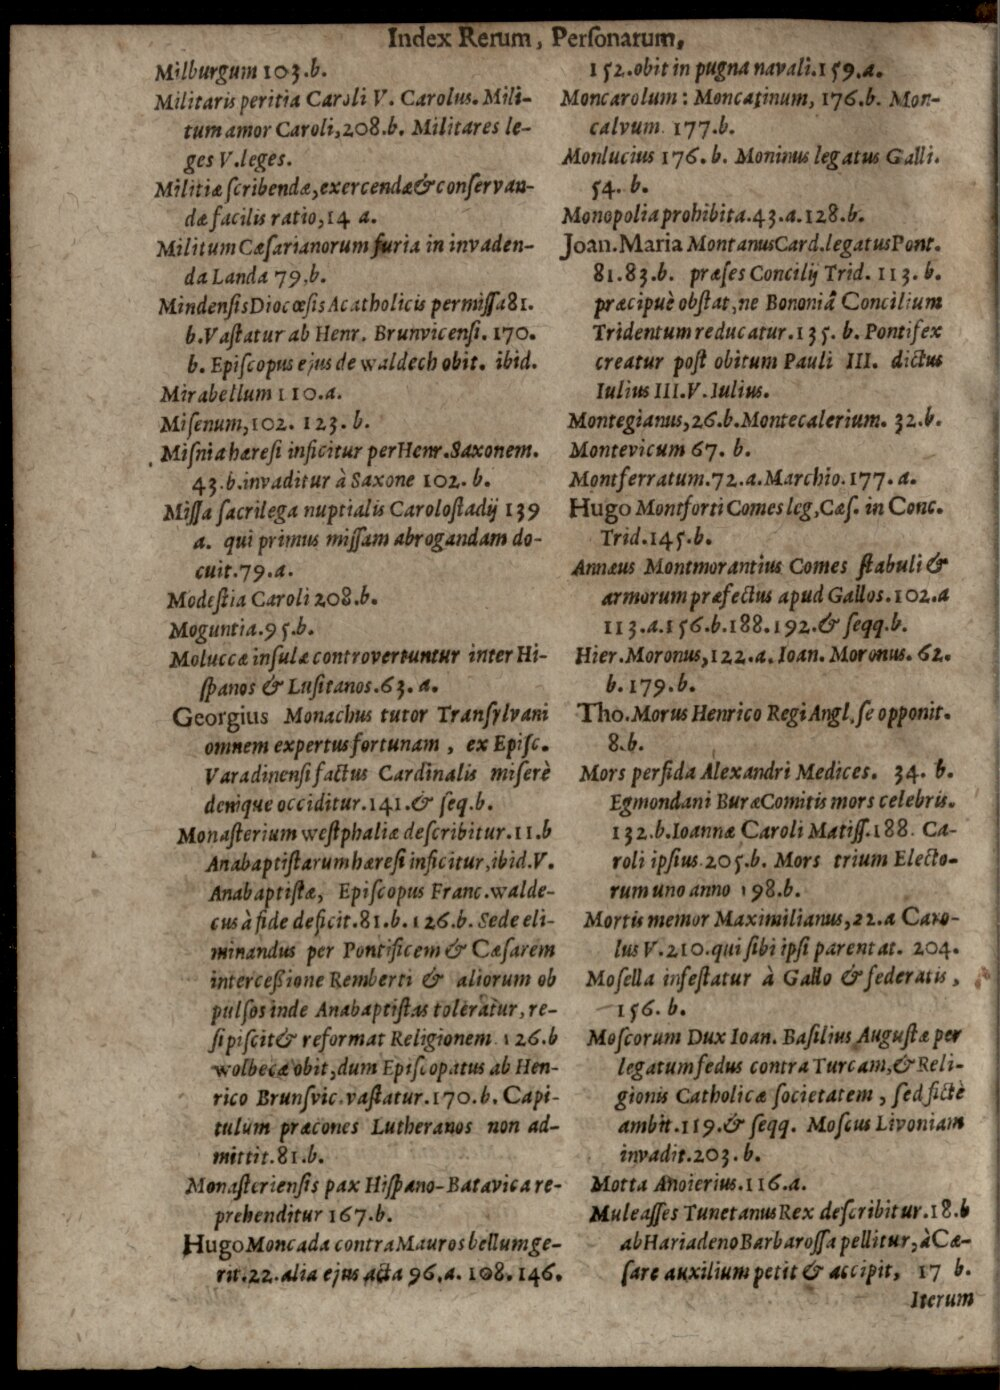 Index Rerum, Personarum,
Milburgum 103.b.
Militaris peritia Caroli V. Carolus. Mili-
tum amor Caroli, 208.b. Militares le-
ges V. leges.
Militiæ scribendæ, exercendæ & conservan-
dæ facilis ratio, 14 a.
Militum Cæsarianorum furia in invaden-
da Landa 79.b.
Mindensis Diocœsis Acatholicis permissa 81.
b. Vastatur ab Henr. Brunvicensi. 170.
b. Episcopus ejus de waldech obit. ibid.
Mirabellum 110.a.
Misenum, 102. 123. b.
Misnia hæresi inficitur per Henr. Saxonem.
43.b. invaditur à Saxone 102. b.
Missa sacrilega nuptialis Carolostadij 139
a. qui primus missam abrogandam do-
cuit. 79.a.
Modestia Caroli 208.b.
Moguntia. 95.b.
Moluccæ insulæ controvertuntur inter Hi-
spanos & Lusitanos. 63. a.
Georgius Monachus tutor Transylvani
omnem expertus fortunam, ex Episc.
Varadinensi factus Cardinalis miserè
denique occiditur. 141. & seq. b.
Monasterium westphaliæ describitur. 11.b
Anabaptistarum hæresi inficitur, ibid. V.
Anabaptistæ, Episcopus Franc. walde-
cus à fide deficit. 81. b. 126. b. Sede eli-
minandus per Pontificem & Cæsarem
intercessione Remberti & aliorum ob
pulsos inde Anabaptistas toleratur, re-
sipiscit & reformat Religionem 126.b
wolbecæ obit, dum Episcopatus ab Hen-
rico Brunsvic. vastatur. 170. b. Capi-
tulum præcones Lutheranos non ad-
mittit. 81.b.
Monasteriensis pax Hispano-Batavica re-
prehenditur 167.b.
Hugo Moncada contra Mauros bellum ge-
rit. 22. alia ejus acta 96. a. 108. 146.
152. obit in pugna navali. 159. a.
Moncarolum: Moncatinum, 176.b. Mon-
calvum 177.b.
Monlucius 176. b. Moninus legatus Galli.
54. b.
Monopolia prohibita. 43. a. 128. b.
Joan. Maria Montanus Card. legatus Pont.
81. 83. b. præses Concilij Trid. 113. b.
præcipuè obstat, ne Bononiâ Concilium
Tridentum reducatur. 135. b. Pontifex
creatur post obitum Pauli III. dictus
Iulius III. V. Iulius.
Montegianus, 26.b. Montecalerium. 32.b.
Montevicum 67. b.
Montferratum. 72. a. Marchio. 177. a.
Hugo Montforti Comes leg, Cæs. in Conc.
Trid. 145. b.
Annæus Montmorantius Comes stabuli &
armorum præfectus apud Gallos. 102. a
113. a. 156. b. 188. 192. & seqq. b.
Hier. Moronus, 122. a. Ioan. Moronus. 62.
b. 179. b.
Tho. Morus Henrico Regi Angl, se opponit.
8.b.
Mors perfida Alexandri Medices. 34. b.
Egmondani Buræ Comitis mors celebris.
132. b. Ioannæ Caroli Matiss. 188. Ca-
roli ipsius 205. b. Mors trium Electo-
rum uno anno 198. b.
Mortis memor Maximilianus, 22. a Caro-
lus V. 210. qui sibi ipsi parentat. 204.
Mosella infestatur à Gallo & federatis,
156. b.
Moscorum Dux Ioan. Basilius Augustæ per
legatum fedus contra Turcam, & Reli-
gionis Catholicæ societatem, sed fictè
ambit. 119. & seqq. Moscus Livoniam
invadit. 203. b.
Motta Anoierius. 116. a.
Muleasses Tunetanus Rex describitur. 18.b
ab Hariadeno Barbarossa pellitur, à Cæ-
sare auxilium petit & accipit, 17 b.
Iterum